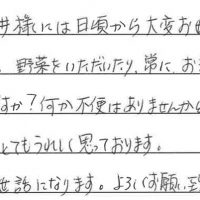 井様には日頃から大変お世
、野菜をいただいたり、常に、お
すか?何か不便はありませんか
とてもうれしく思っております。
世話になります。よろしくお願い致